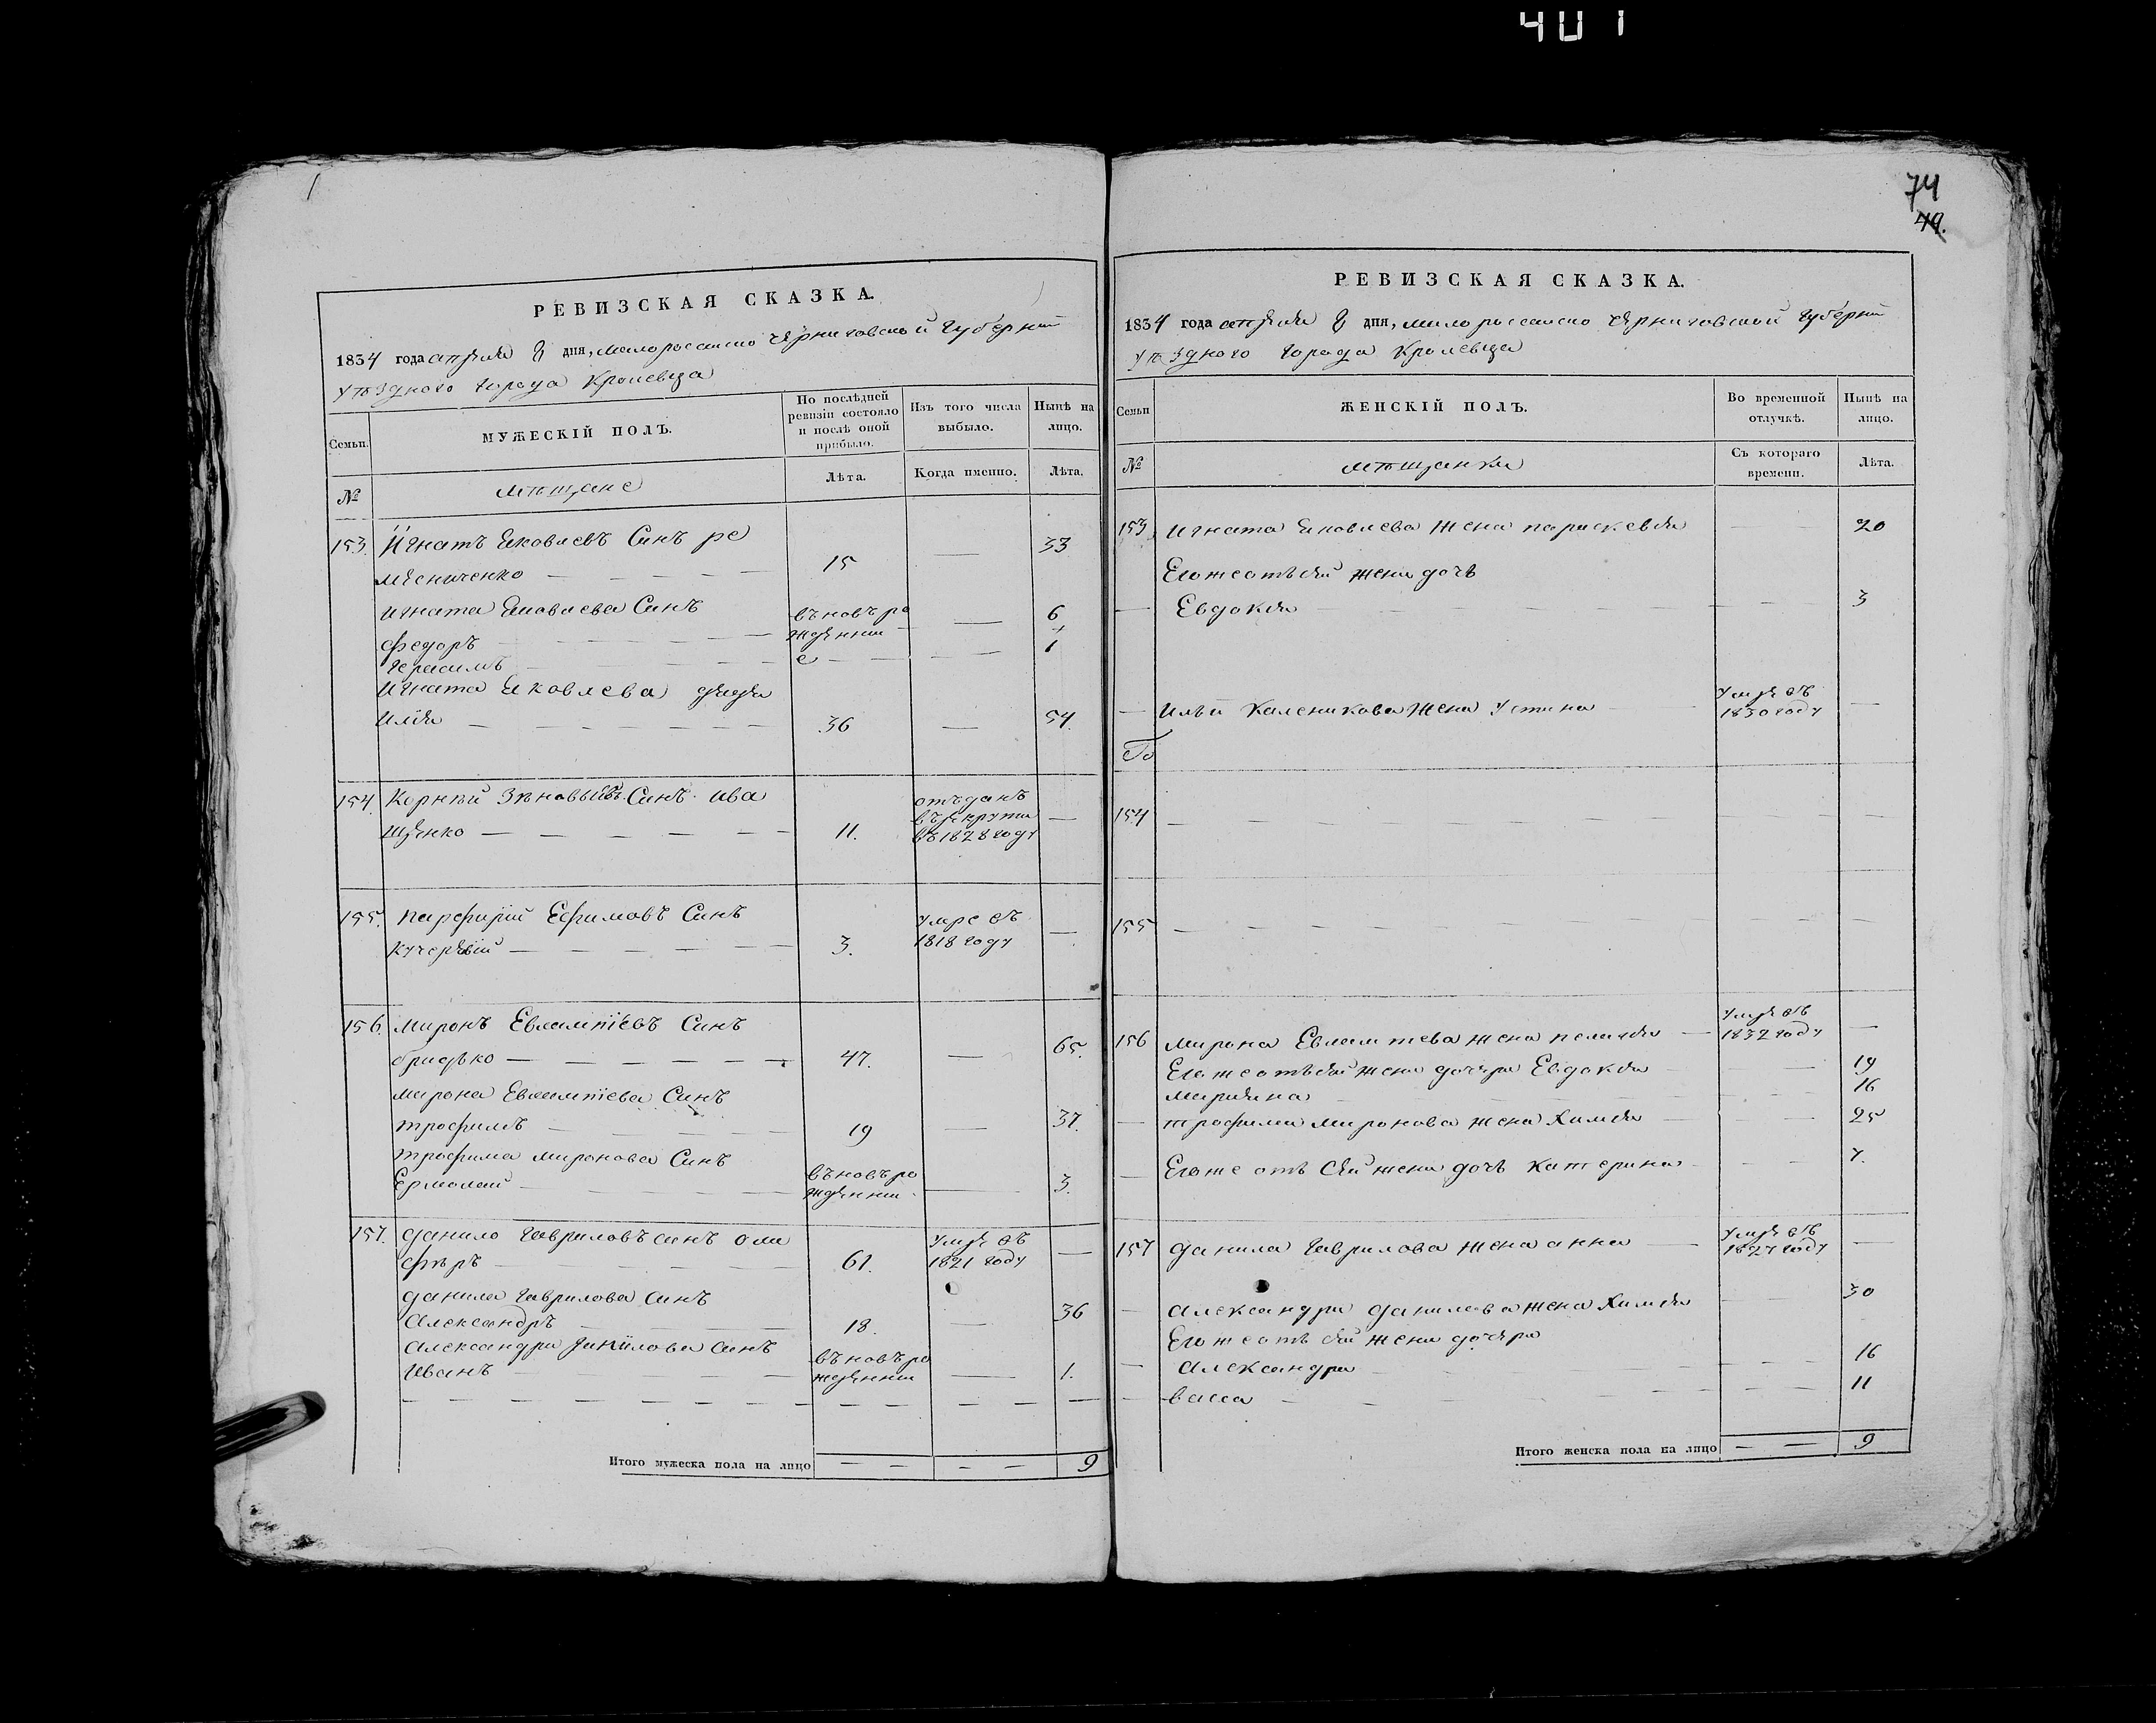 401
74
49.
РЕВИЗСКАЯ СКАЗКА.
1834 года апреля дня, малороссийско Черниговской Губернии
уѣздного города Кролевца
Семьи.
МУЖЕСКІЙ ПОЛЪ.
По послѣдней ревизіи состояло и послѣ оной прибыло.
Изъ того числа выбыло.
Нынѣ на лицо.
№
мѣщане
Лѣта.
Когда именно.
Лѣта.
153. Игнатъ Яковлевъ Синъ ре
мѣсниченко — 15 — 33
Игната Яковлева Синъ
федоръ — въновъ ро жденни — 6
Герасимъ — е — 1
Игната Яковлева дядя
илія — 36 — 54.
154. Корнѣй Зѣновьіевъ Синъ ива
щенко — 11. отъданъ въ рекрути въ 1828 году —
155. парфирій Ефимовъ Синъ
Кучерявій — 3. умре въ 1818 году —
156. миронъ Евлампіевъ Синъ
бридько — 47. — 65.
мирона Евлампіева Синъ
трофимъ — 19 — 37.
трофима миронова Синъ
Ермолай — въновъ ро жденни — 3.
157. данило Гавриловъ синъ
61. умре въ 1821 году —
данила Гаврилова синъ
Александръ — 18. — 36
Александра данилова синъ
Иванъ — въновъ ро жденни — 1.
Итого мужеска пола на лицо — — — — 9
РЕВИЗСКАЯ СКАЗКА.
1834 года апреля дня, малороссийско Черниговской Губернии
уѣздного города Кролевца
Семьи
ЖЕНСКІЙ ПОЛЪ.
Во временной отлучкѣ.
Нынѣ на лицо.
№
мѣщанки
Съ котораго времени.
Лѣта.
153. игната Яковлева жена параскевія — 20
Егожеотъсій жени дочь
— Евдокія — 3
— Ильи Каленикова жена Устина — умре въ 1830 году —
154 — — —
155 — — —
156 мирона Евлампева жена пелагія — умре въ 1832 году —
Егожеотъсій жени дочери Евдокія — 19
мариана — 16
— трофима миронова жена Химія — 25
— Егоже отъ Сій жени дочь Катерина — 7.
157 данила Гаврилова жена анна — умре въ 1827 году —
— александра данилова жена Химія — 30
Егожеотъ сій жени дочери
— Александра — 16
— васса — 11
Итого женска пола на лицо — — 9